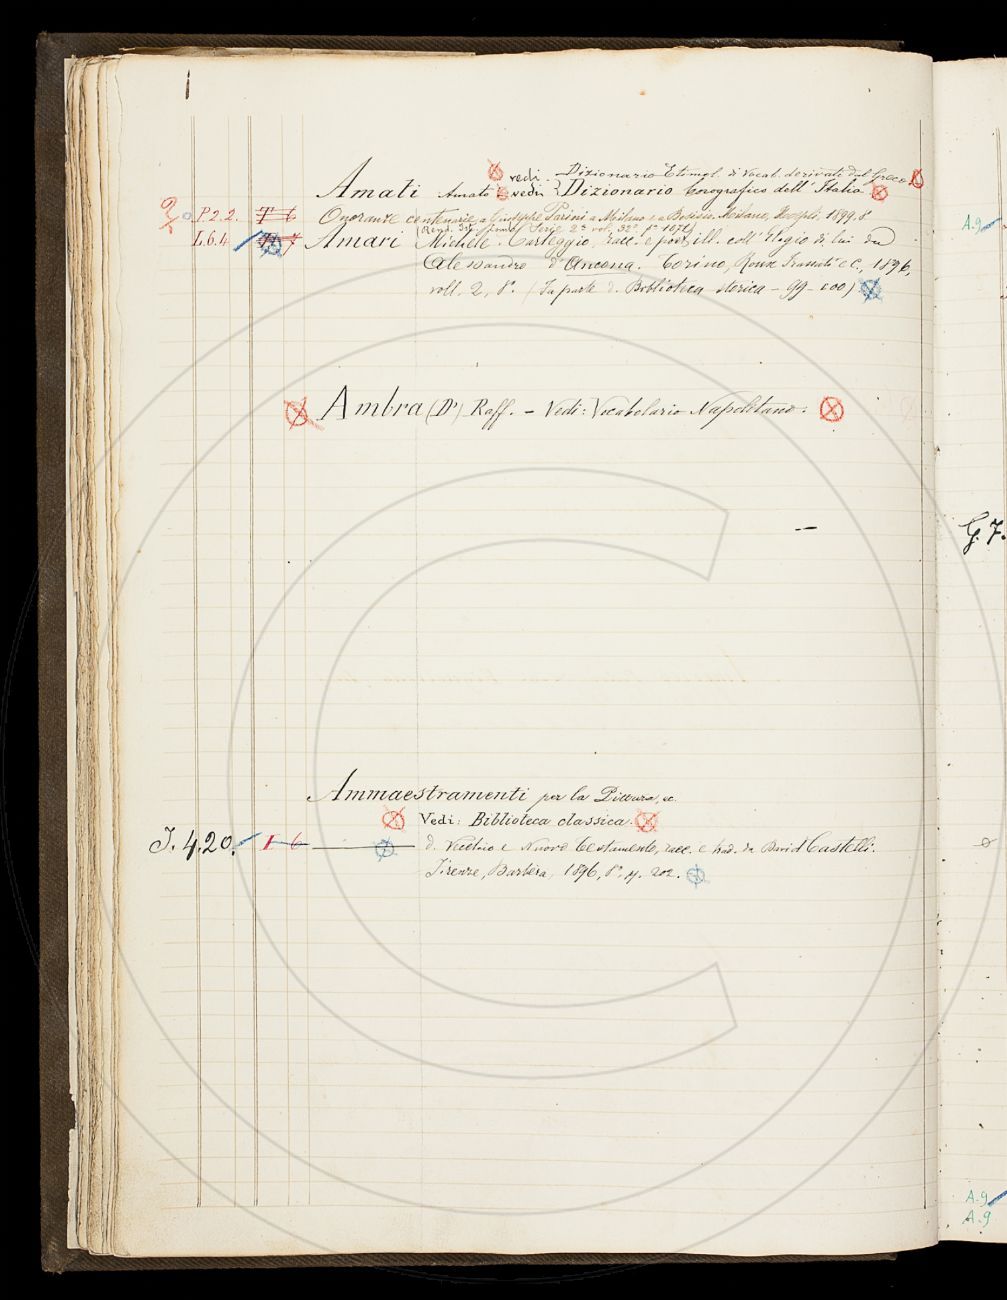 vedi. Dizionario Etimol. di Vocab. derivati dal Greco
Amati Amato vedi Dizionario Corografico dell' Italia.
P. 2. 2. T 6 Onoranze centenarie a Giuseppe Parini a Milano e a Bosisio. Milano, Hoepli, 1899. 8°
(Rend. Ist. Lomb.) Serie 2ª vol. 32°
L. 6. 4 Amari Michele. Carteggio, racc. e post. ill. coll' Elogio di lui da
Alessandro d' Ancona. Torino, Roux Frassati e C., 1896,
voll. 2, 8°. (Fa parte d. Biblioteca storica –
Ambra (Dr) Raff. – Vedi: Vocabolario Napoletano.
G. 7.
Ammaestramenti per la Pittura, ec.
Vedi: Biblioteca classica.
I. 4. 20. I 6 d. Vecchio e Nuovo Testamento, racc. e trad. da David Castelli.
Firenze, Barbèra, 1896, 8°, p. 202.
A. 9
A. 9
A. 9